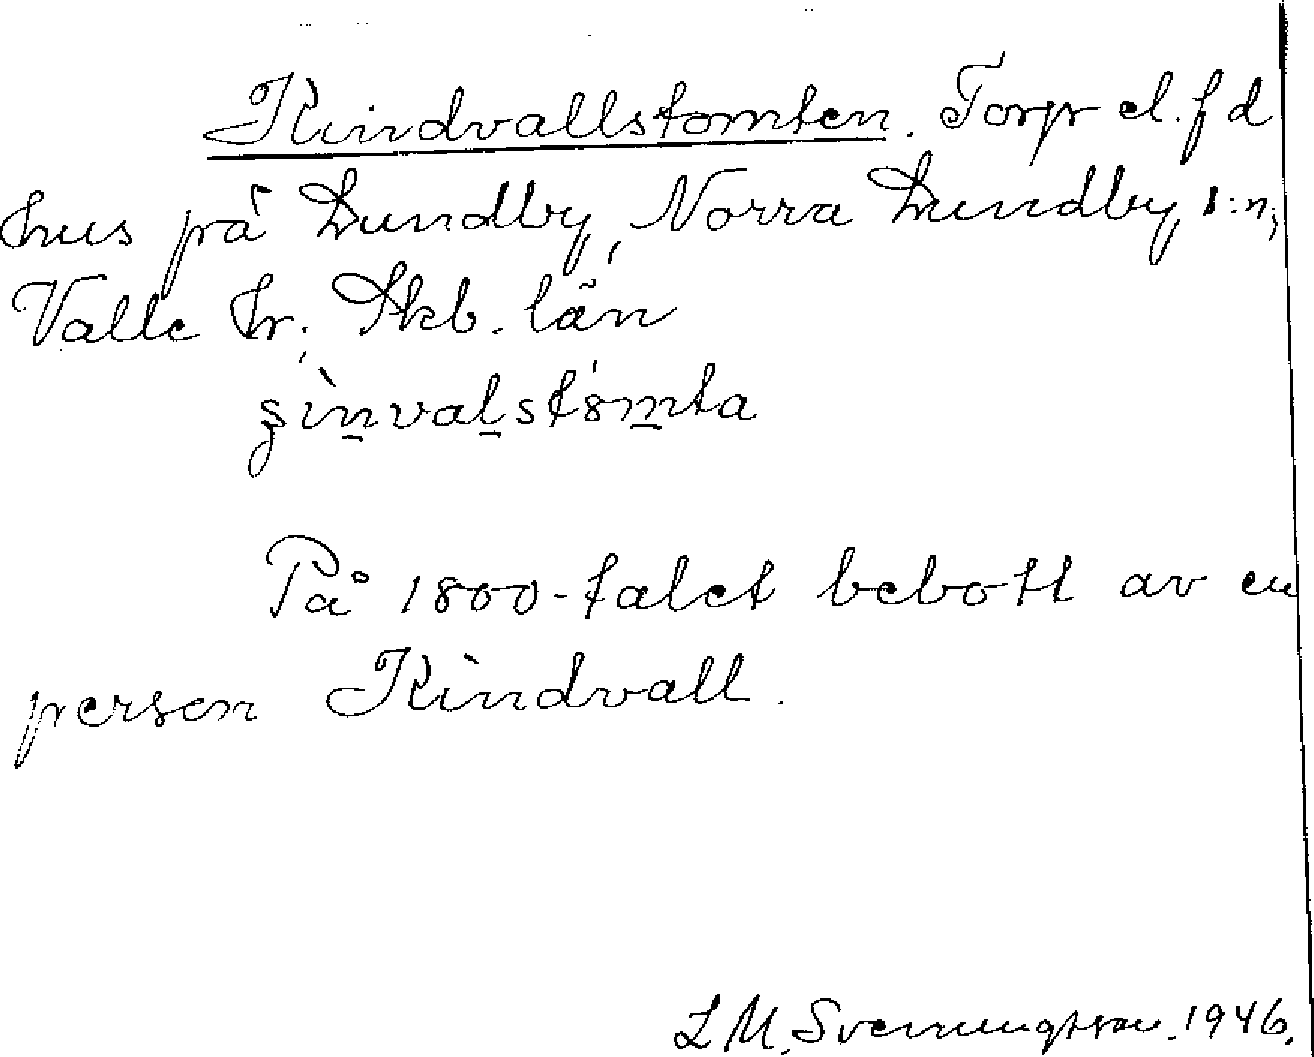 Kindvallstomten. Torp el. f d
hus på Lundby, Norra Lundby s:n,
Valle hr. Skb. län
ʂìnvalstömta
På 1800-talet bebott av en
person Kindvall.
L M. Svenungsson. 1946.